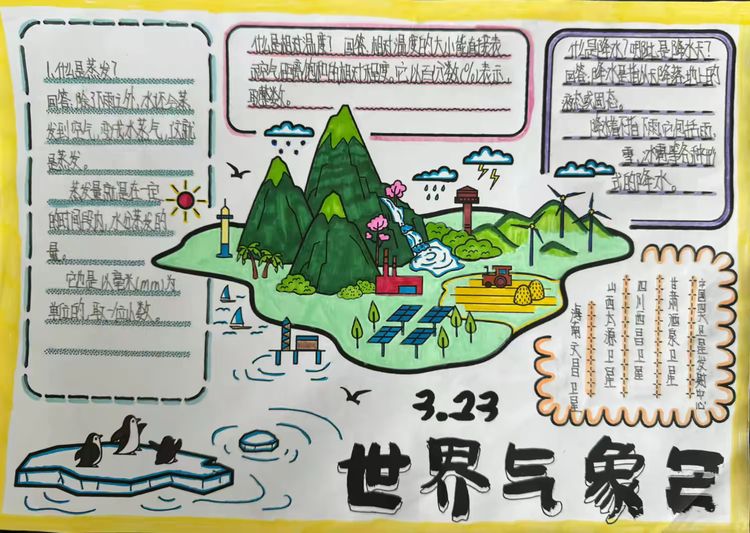 1.什么是蒸发?
回答:除了下雨之外,水还会蒸
发到空气,变成水蒸气,这就
是蒸发。
蒸发量就是在一定
的时间段内,水分蒸发的
量。
它也是以毫米(mm)为
单位的,取一位小数。
什么是相对湿度? 回答:相对湿度的大小能直接表
示空气距离饱和的相对程度。它以百分数(%)表示,
取整数。
什么是降水?哪些是降水
回答:降水是指从天降落地上的
液态或固态。
降水不指下雨,它包括雨、
雪、冰雹等各种形
式的降水。
中国四大卫星发射中心
甘肃酒泉卫星
四川西昌卫星
山西太原卫星
海南文昌卫星
3.23
世界气象